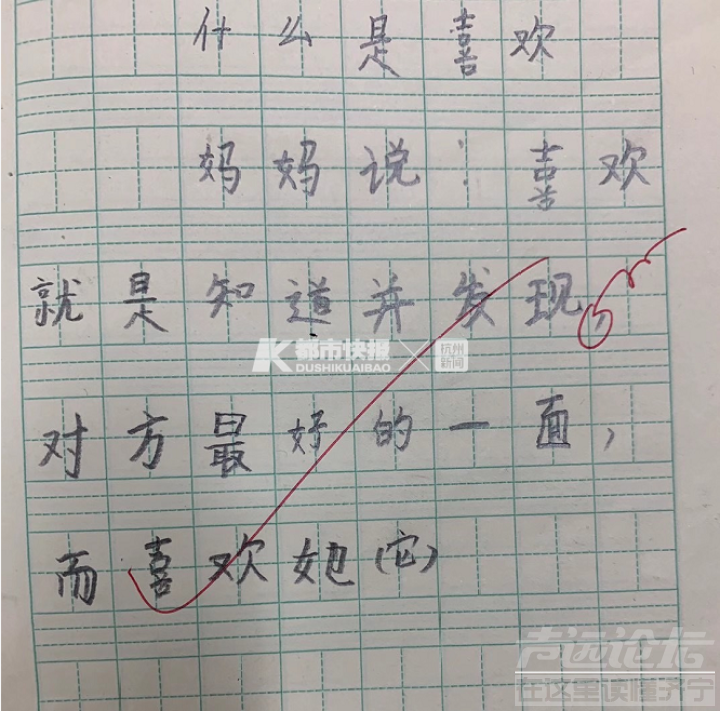 什么是喜欢
妈妈说：喜欢
就是知道并发现，
K都市快报 × 杭州新闻
DUSHIKUAIBAO
对方最好的一面，
而喜欢她（它）
声远论坛
在这里读懂济宁